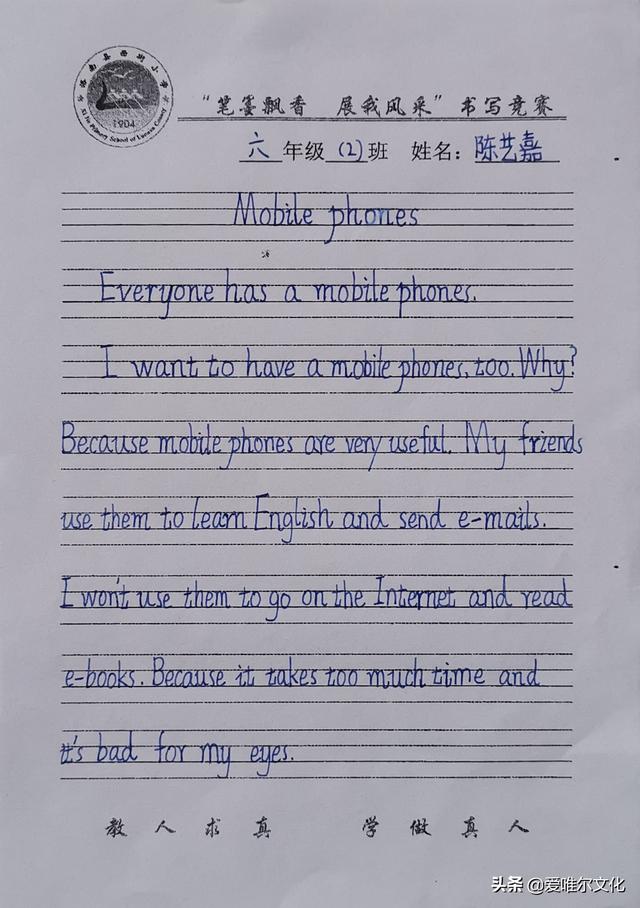 洛南县西街小学
Xi Jie Primary School of Luonan County
1904
“笔墨飘香 展我风采”书写竞赛
六 年级 (2) 班 姓名: 陈艺嘉
Mobile phones
Everyone has a mobile phones.
I want to have a mobile phones, too. Why?
Because mobile phones are very useful. My friends
use them to learn English and send e-mails.
I won't use them to go on the Internet and read
e-books. Because it takes too much time and
it's bad for my eyes.
教人求真 学做真人
头条 @爱唯尔文化